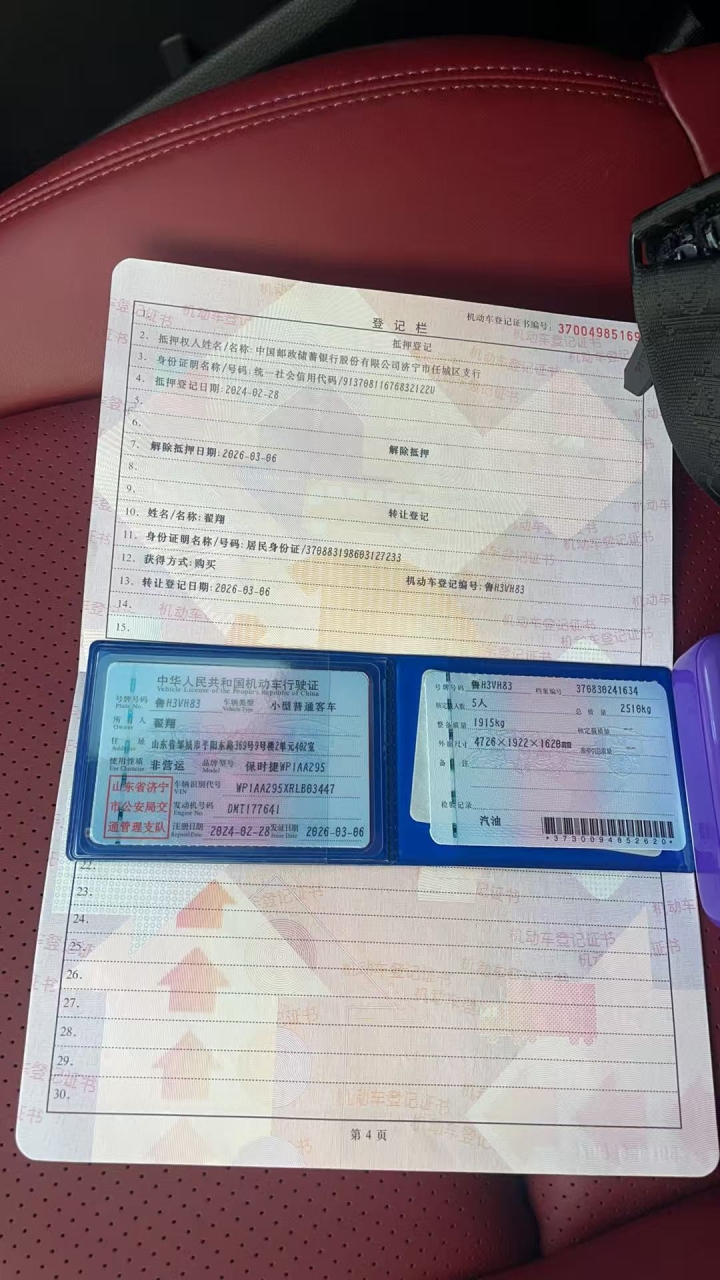 机动车登记证书编号: 37004985169
登记栏
1. 抵押登记
2. 抵押权人姓名/名称: 中国邮政储蓄银行股份有限公司济宁市任城区支行
3. 身份证明名称/号码: 统一社会信用代码/91370811676832122U
4. 抵押登记日期: 2024-02-28
5.
6.
7. 解除抵押
解除抵押日期: 2026-03-06
8.
9.
10. 转让登记
姓名/名称: 翟翔
11. 身份证明名称/号码: 居民身份证/370883198603127233
12. 获得方式: 购买
13. 转让登记日期: 2026-03-06 机动车登记编号: 鲁H3VH83
14.
15.
中华人民共和国机动车行驶证
Vehicle License of the People's Republic of China
号牌号码 鲁H3VH83 车辆类型 小型普通客车
Plate No. Vehicle Type
所有人 翟翔
Owner
住址 山东省邹城市平阳东路369号9号楼2单元402室
Address
使用性质 非营运 品牌型号 保时捷WP1AA295
Use Character Model
山东省济宁
市公安局交
通管理支队
车辆识别代号 WP1AA295XRLB03447
VIN
发动机号码 DMT177641
Engine No.
注册日期 2024-02-28 发证日期 2026-03-06
Register Date Issue Date
号牌号码 鲁H3VH83 档案编号 370830241634
核定载人数 5人 总质量 2510kg
整备质量 1915kg 核定载质量
外廓尺寸 4726×1922×1620mm 准牵引总质量
备注
检验记录
汽油
*3730094852620*
22.
23.
24.
25.
26.
27.
28.
29.
30.
第 4 页